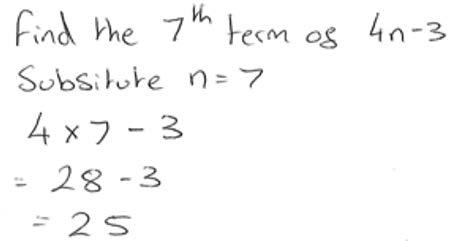 find the 7th term of 4n-3
Subsitute n=7
4 × 7 - 3
= 28 - 3
= 25